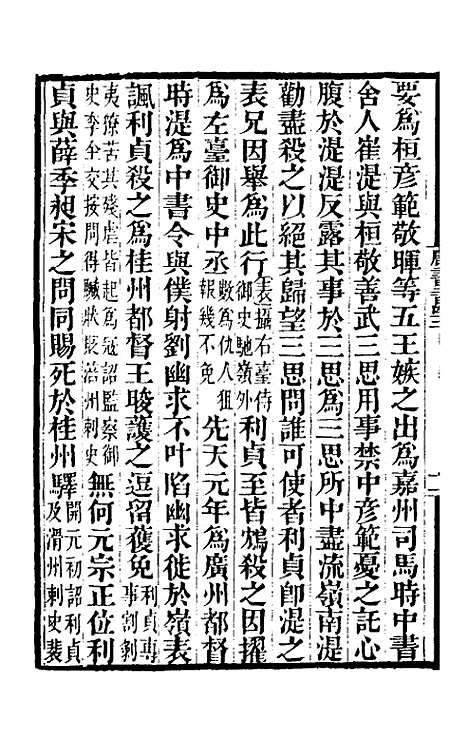 要為桓彥範敬暉等五王嫉之出為嘉州司馬時中書
舍人崔湜與桓敬善武三思用事禁中彥範憂之託心
腹於湜湜反露其事於三思為三思所中盡流嶺南湜
勸盡殺之以絕其歸望三思問誰可使者利貞卽湜之
表兄因舉為此行表攝右臺侍御史馳嶺外利貞至皆鴆殺之因擢
為左臺御史中丞數為仇人狙報幾不免先天元年為廣州都督
時湜為中書令與僕射劉幽求不叶陷幽求徙於嶺表
諷利貞殺之為桂州都督王晙護之逗留獲免利貞專事剝割
夷獠苦其殘虐皆起為冦詔監察御史李全交按問得贓狀貶涪州刺史無何元宗正位利
貞與薛季昶宋之問同賜死於桂州驛開元初詔利貞及滑州刺史裴